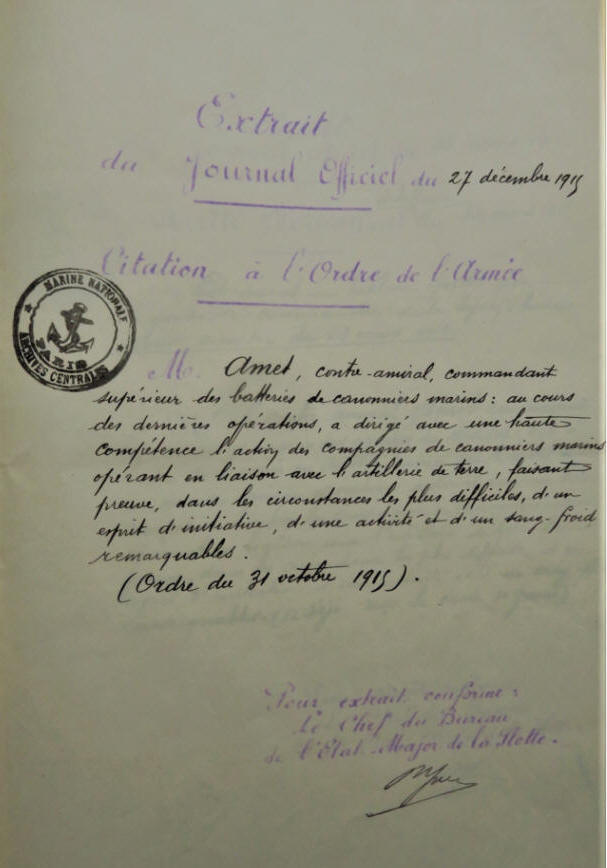 Extrait
du Journal Officiel du 27 décembre 1915
Citation à l'Ordre de l'Armée
MARINE NATIONALE
PARIS
ARCHIVES CENTRALES
M. Amet, contre-amiral, commandant
supérieur des batteries de canonniers marins : au cours
des dernières opérations, a dirigé avec une haute
compétence l'action des compagnies de canonniers marins
opérant en liaison avec l'artillerie de terre, faisant
preuve, dans les circonstances les plus difficiles, d'un
esprit d'initiative, d'une activité et d'un sang-froid
remarquables.
(Ordre du 31 octobre 1915).
Pour extrait conforme :
Le Chef du Bureau
de l'Etat-Major de la Flotte.